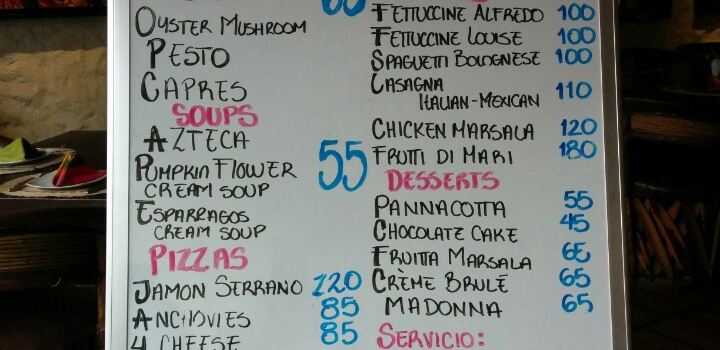 60
OYSTER MUSHROOM
PESTO
CAPRES
SOUPS
AZTECA
PUMPKIN FLOWER
CREAM SOUP
55
ESPARRAGOS
CREAM SOUP
PIZZAS
JAMON SERRANO 120
ANCHOVIES 85
4 CHEESE 85
FETTUCCINE ALFREDO 100
FETTUCCINE LOUISE 100
SPAGUETTI BOLOGNESE 100
LASAGNA
ITALIAN-MEXICAN 110
CHICKEN MARSALA 120
FRUTTI DI MARI 180
DESSERTS
PANNACOTTA 55
CHOCOLATE CAKE 45
FRUITTA MARSALA 65
CRÈME BRULÉ 65
MADONNA 65
SERVICIO: